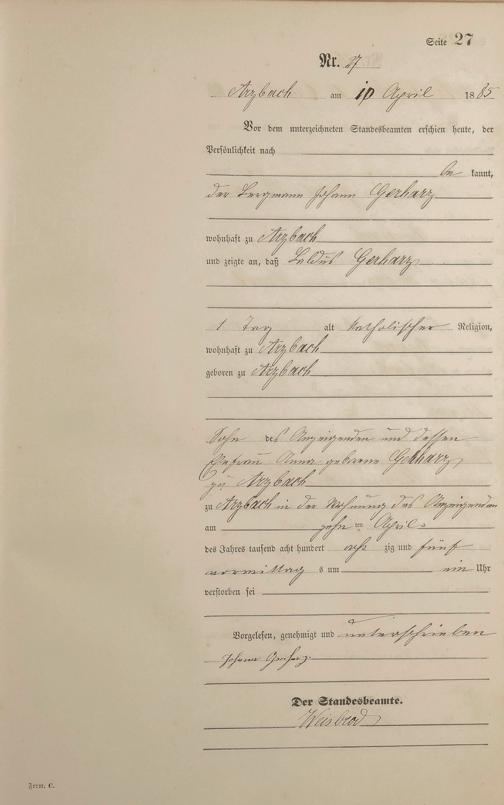 Seite 27
Nr. 27
Arzbach am 10 April 1885
Vor dem unterzeichneten Standesbeamten erschien heute, der
Persönlichkeit nach
be kannt,
der Bergmann Johann Gerharz
wohnhaft zu Arzbach
und zeigte an, daß Gerharz
1 Tag alt katholischer Religion,
wohnhaft zu Arzbach
geboren zu Arzbach
Sohn des Anzeigenden und dessen
Ehefrau Anna geborene Gerharz
zu Arzbach
zu Arzbach in der Wohnung des Anzeigenden
am zehnten April
des Jahres tausend acht hundert acht zig und fünf
vormittag s um ein Uhr
verstorben sei
Vorgelesen, genehmigt und unterschrieben
Johann Gerharz
Der Standesbeamte.
Weisbrod
Form. C.